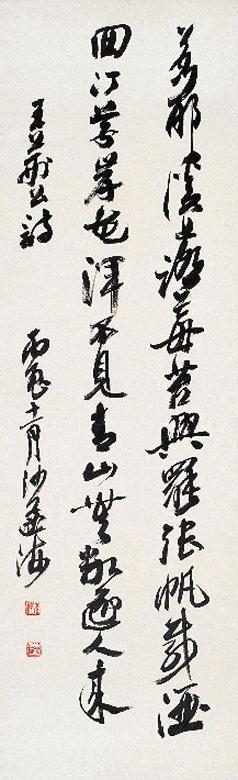 若耶溪上踏莓苔興罷張帆載酒
回汀草岸花渾不見青山無數逐人來
王荆公詩
月沙孟海